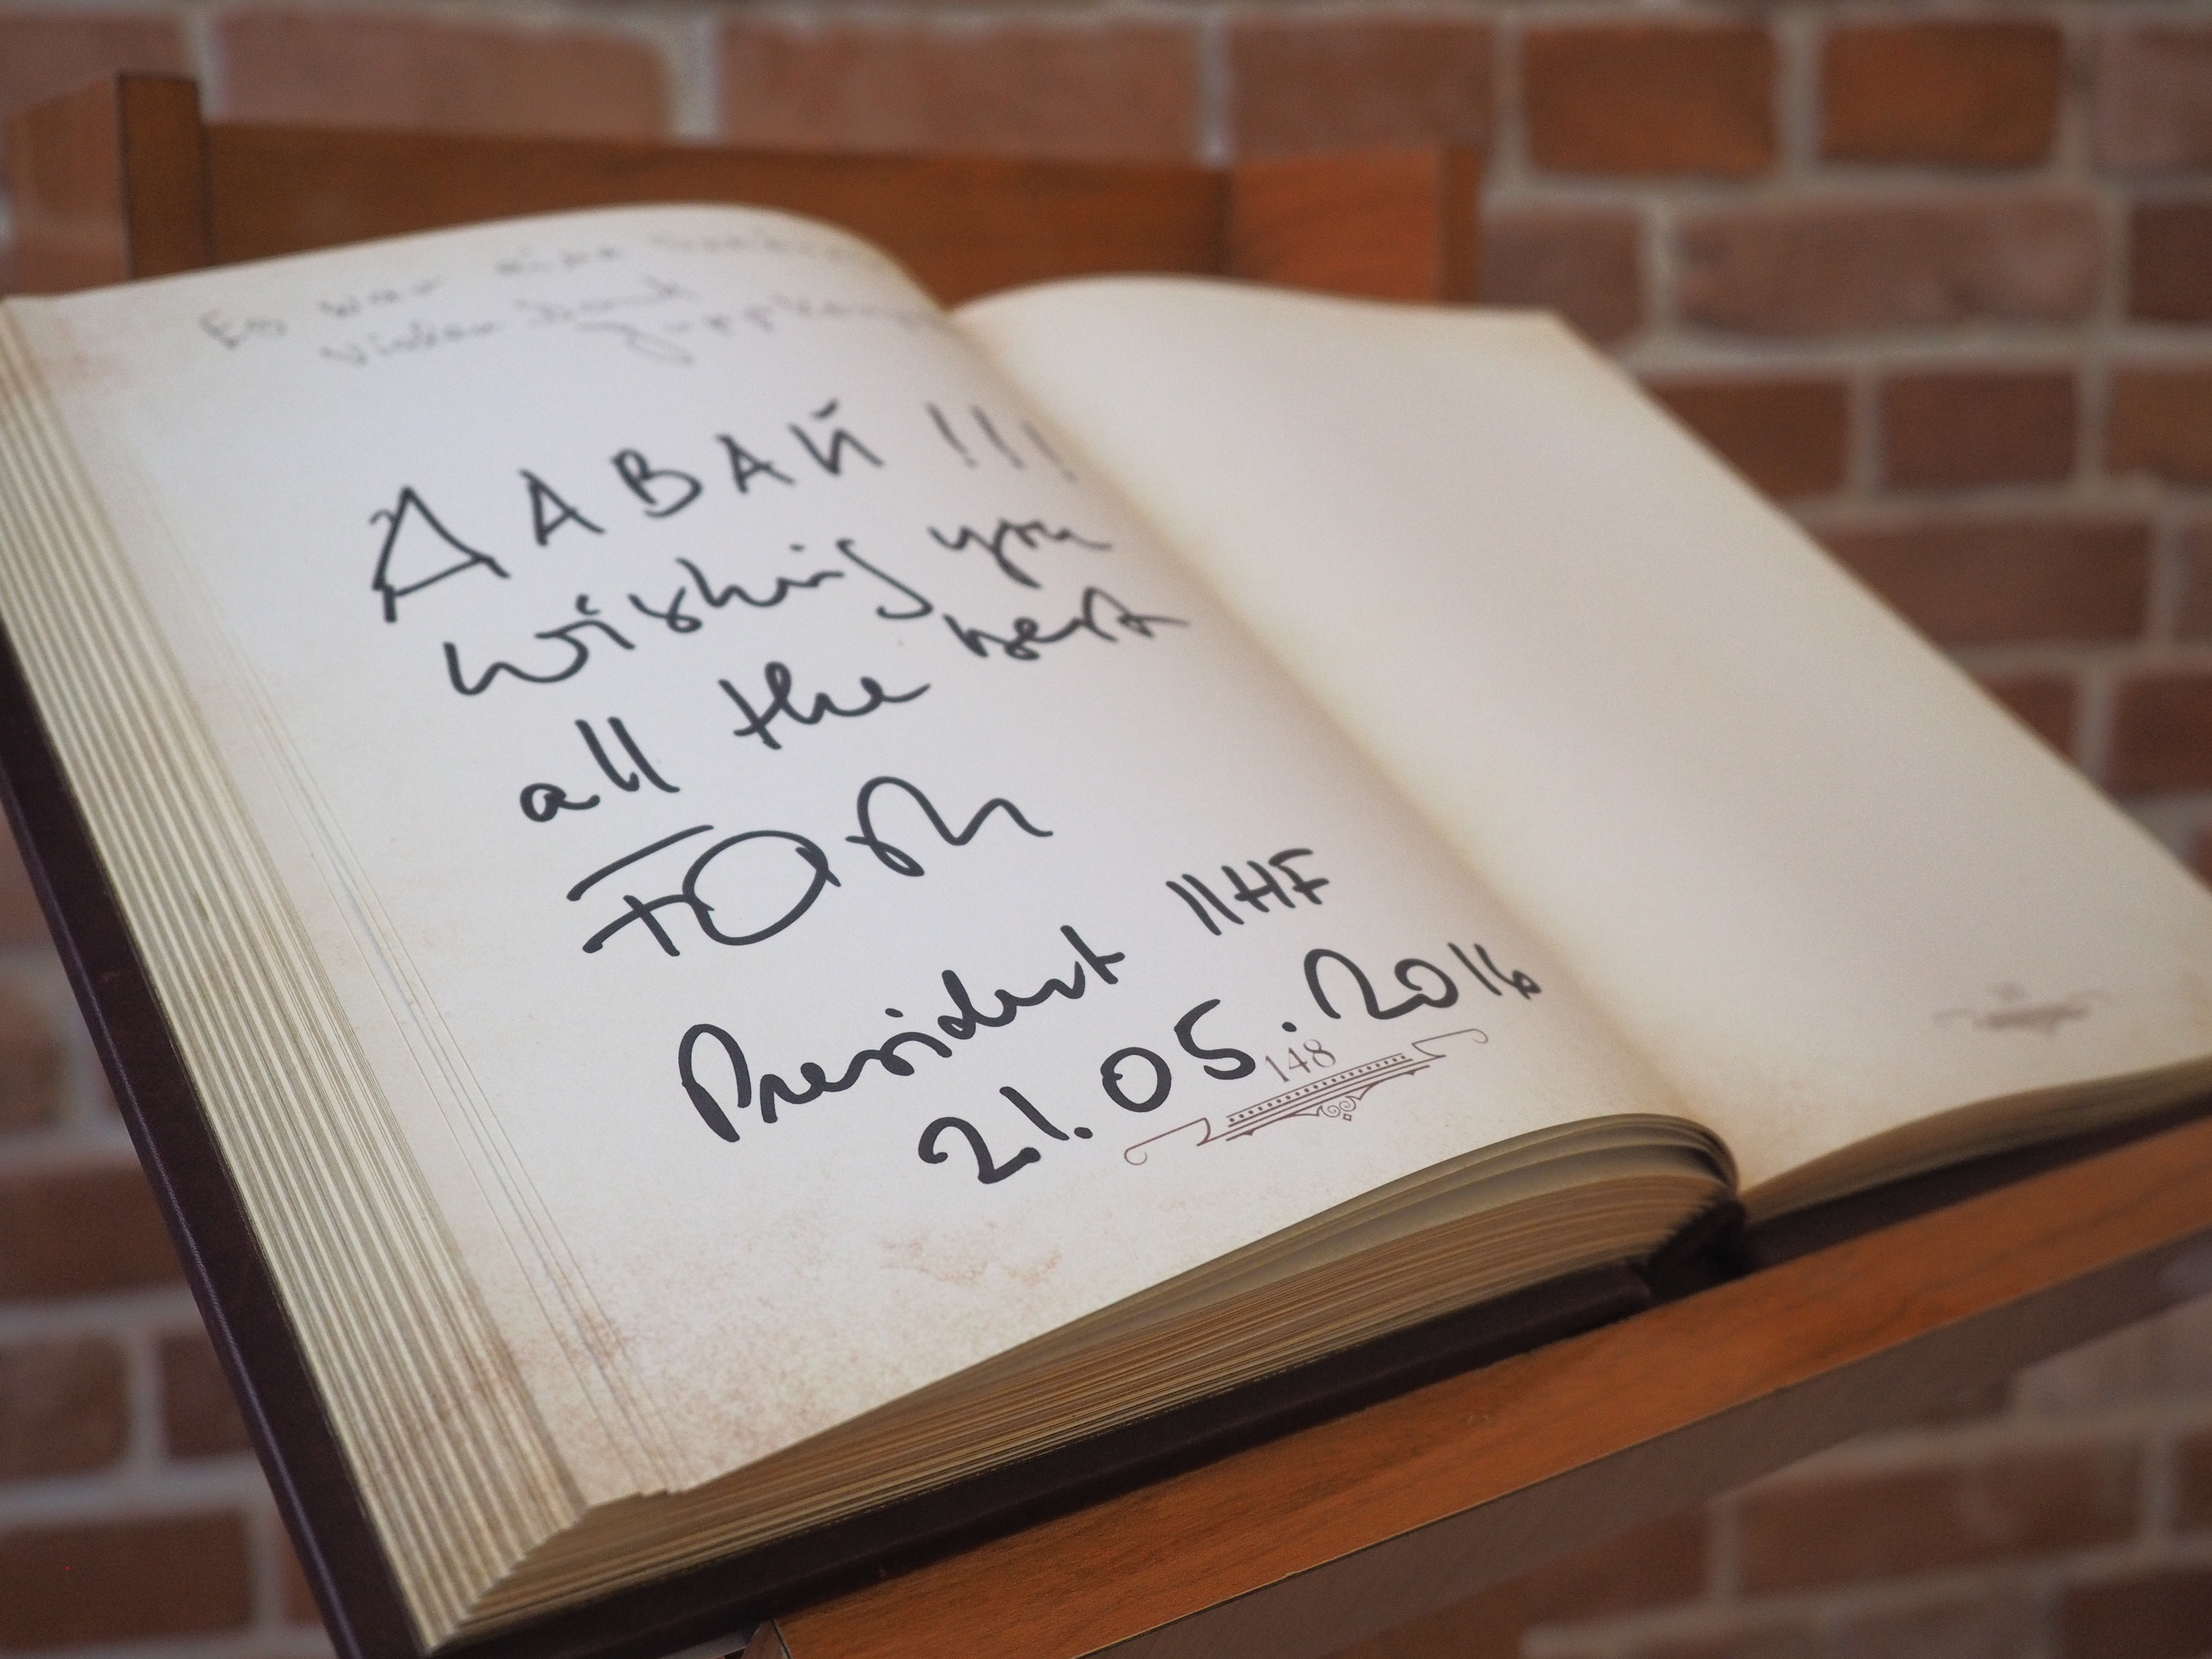 Es war eine
Vielen Dank
ДАВАЙ!!!
Wishing you
all the best
President IIHF
21.05.2016
148